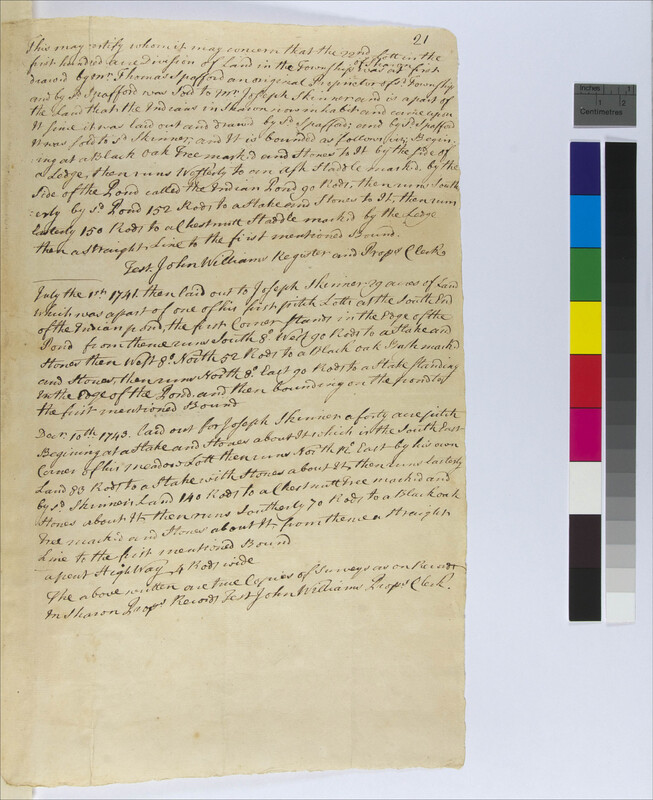 21
This may certify whom it may concern that the 22nd Lott in the
first hundred acre Division of Land in the Township of Sharon was at first
drawd by mr. Thomas Spafford an original Proprietor of sd. Township
and by sd Spafford was Sod to mr. Joseph Skinner and is a part of
the Land that the Indians in Sharon now inhabit and carrie upon
It sine it was laid out and drawd by sd. Spaffard, and by sd. Spafferd
It was sold to sd. Skinner, and It is bounded as follows viz; Begin-
ing at a Black Oak Tree marked and Stones to It by the Side of
a Ledge, then runs Westerly to an ash Staddle marked, by the
Side of the Pond called the Indian Pond 90 Rods, then runs South
erly by sd. Pond 152 Rods to a Stake and Stones to It, then runs
Easterly 150 Rods to a Chestnutt Staddle markd by the Ledge
then a Straight Line to the first mentioned Bound.
Test. John Williams Register and Props Clerk
July the 1st 1741. then laid out to Joseph Skinner 29 acres of Land
which was a part of one of his first pitch Lotts at the South End
of the Indian pond, the first Corner Stands in the Edge of the
Pond from thence runs South 8d. West 90 Rods to a Stake and
Stones then West 8d. North 52 Rods to a Black oak Bush markd
and Stones, then runs North 8d. East 90 Rods to a Stake Standing
In the Edge of the Pond, and then bounding on the pond to
the first mentioned Bound
Decr. 10th. 1743. laid out for Joseph Skinner a forty acre pitch
Begining at a Stake and Stones about It which is the South East
Corner of his meadow Lott then runs North 12d. East by his own
Land 83 Rods to a Stake with Stones about It, then runs Easterly
by sd. Skinners Land 140 Rods to a Chestnutt Tree markd and
Stones about It, then runs Southerly 70 Rods to a Black oak
Tree markd and Stones about It, from thence a Straight
Line to the first mentioned Bound
apent High Way 4 Rods wide
The above written are true Copies of Surveys as on Record
In Sharon Props Records Test John Williams Props Clerk.
Inches
1
2
Centimetres